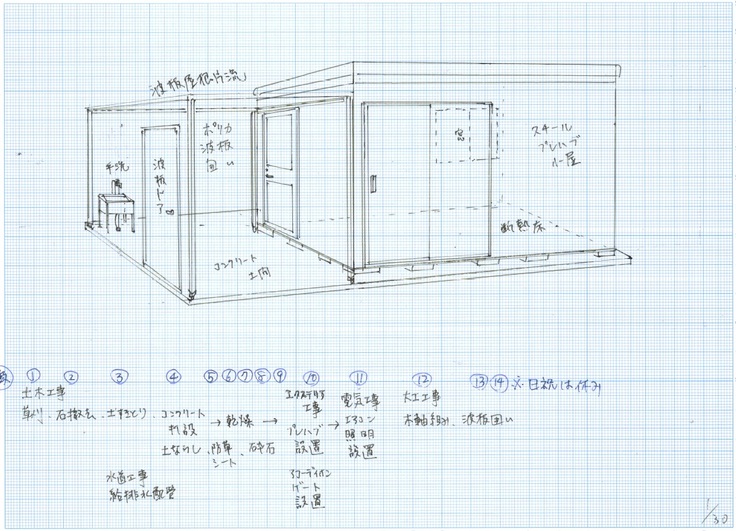 波板屋根片流
ポリカ
波板
囲い
手洗
波板ドア
窓
スチール
プレハブ
小屋
断熱床
コンクリート
土間
① ② ③ ④ ⑤ ⑥ ⑦ ⑧ ⑨ ⑩ ⑪ ⑫ ⑬ ⑭ ※日祝は休み
土木工事
草刈、石撤去、土すきとり、コンクリート
打設
→乾燥→
エクステリア
工事
プレハブ
設置
→
電気工事
エアコン
照明
設置
大工工事
木軸組み、波板囲い
土ならし、防草
シート
、砕石
水道工事
給排水配管
アコーディオン
ゲート
設置
1/30